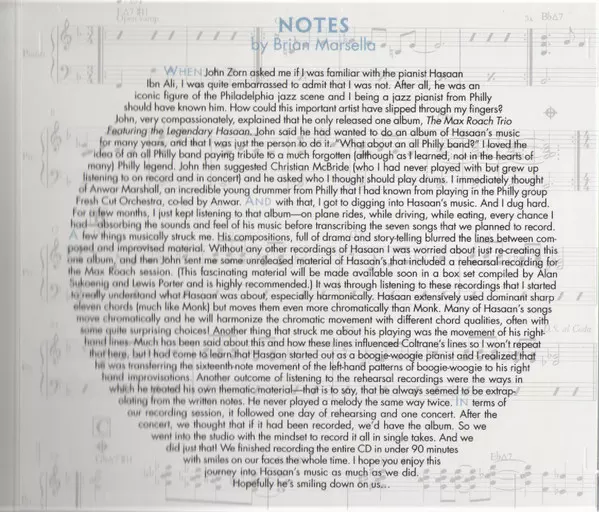 NOTES
by Brian Marsella
WHEN John Zorn asked me if I was familiar with the pianist Hasaan
Ibn Ali, I was quite embarrassed to admit that I was not. After all, he was an
iconic figure of the Philadelphia jazz scene and I being a jazz pianist from Philly
should have known him. How could this important artist have slipped through my fingers?
John, very compassionately, explained that he only released one album, The Max Roach Trio
Featuring the Legendary Hasaan. John said he had wanted to do an album of Hasaan's music
for many years, and that I was just the person to do it. "What about an all Philly band?" I loved the
idea of an all Philly band paying tribute to a much forgotten (although as I learned, not in the hearts of
many) Philly legend. John then suggested Christian McBride (who I had never played with but grew up
listening to on record and in concert) and he asked who I thought should play drums. I immediately thought
of Anwar Marshall, an incredible young drummer from Philly that I had known from playing in the Philly group
Fresh Cut Orchestra, co-led by Anwar. AND with that, I got to digging into Hasaan's music. And I dug hard.
For a few months, I just kept listening to that album—on plane rides, while driving, while eating, every chance I
had—absorbing the sounds and feel of his music before transcribing the seven songs that we planned to record.
A few things musically struck me. His compositions, full of drama and story-telling blurred the lines between com-
posed and improvised material. Without any other recordings of Hasaan I was worried about just re-creating this
one album, and then John sent me some unreleased material of Hasaan's that included a rehearsal recording for
the Max Roach session. (This fascinating material will be made available soon in a box set compiled by Alan
Sukoenig and Lewis Porter and is highly recommended.) It was through listening to these recordings that I started
to really understand what Hasaan was about, especially harmonically. Hasaan extensively used dominant sharp
eleven chords (much like Monk) but moves them even more chromatically than Monk. Many of Hasaan's songs
move chromatically and he will harmonize the chromatic movement with different chord qualities, often with
some quite surprising choices! Another thing that struck me about his playing was the movement of his right-
hand lines. Much has been said about this and how these lines influenced Coltrane's lines so I won't repeat
that here, but I had come to learn that Hasaan started out as a boogie-woogie pianist and I realized that
he was transferring the sixteenth-note movement of the left-hand patterns of boogie-woogie to his right
hand improvisations. Another outcome of listening to the rehearsal recordings were the ways in
which he treated his own thematic material—that is to say, that he always seemed to be extrap-
olating from the written notes. He never played a melody the same way twice. IN terms of
our recording session, it followed one day of rehearsing and one concert. After the
concert, we thought that if it had been recorded, we'd have the album. So we
went into the studio with the mindset to record it all in single takes. And we
did just that! We finished recording the entire CD in under 90 minutes
with smiles on our faces the whole time. I hope you enjoy this
journey into Hasaan's music as much as we did.
Hopefully he's smiling down on us...